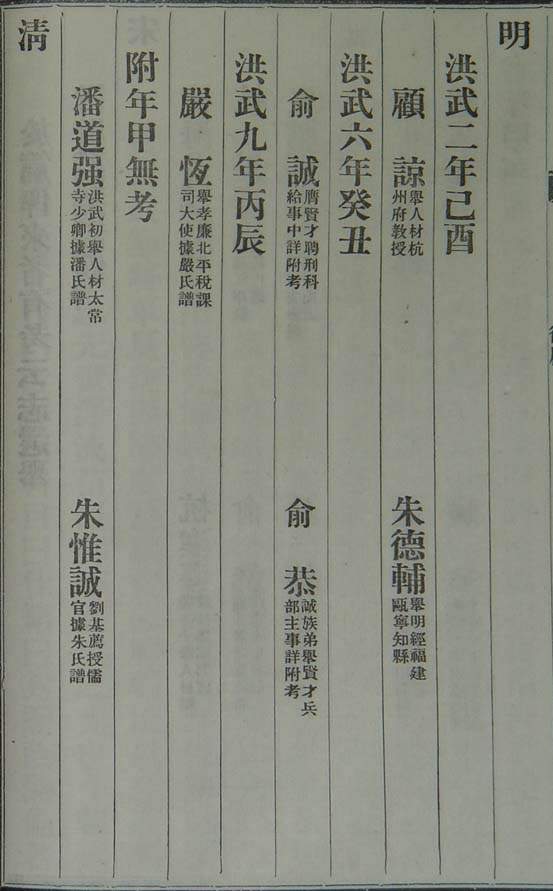 明
洪武二年己酉
顧諒 舉人材杭州府教授 朱德輔 舉明經福建甌寧知縣
洪武六年癸丑
俞誠 膺賢才聘刑科給事中詳附考 俞恭 誠族弟舉賢才兵部主事詳附考
洪武九年丙辰
嚴恆 舉孝廉北平稅課司大使據嚴氏譜
附年甲無考
潘道强 洪武初舉人材太常寺少卿據潘氏譜 朱惟誠 劉基薦授儒官據朱氏譜
清